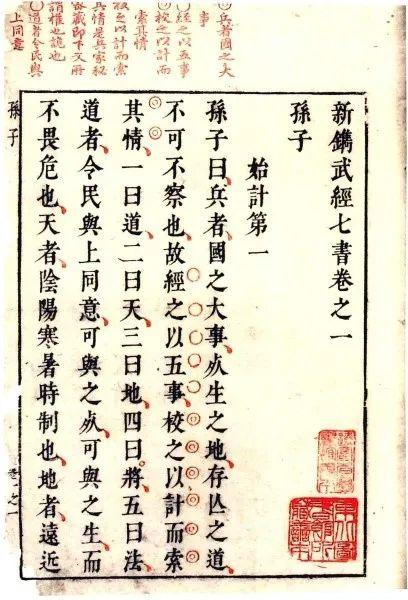 兵者國之大
事
經之以五事
校之以計而
索其情
校之以計而索
其情是兵家秘
密藏即下文所
謂權也詭也
道者令民與
上同意
新鐫武經七書卷之一
孫子
始計第一
孫子曰兵者國之大事死生之地存亾之道
不可不察也故經之以五事校之以計而索
其情一曰道二曰天三曰地四曰將五曰法
道者令民與上同意可與之死可與之生而
不畏危也天者陰陽寒暑時制也地者遠近
孫子
卷之一